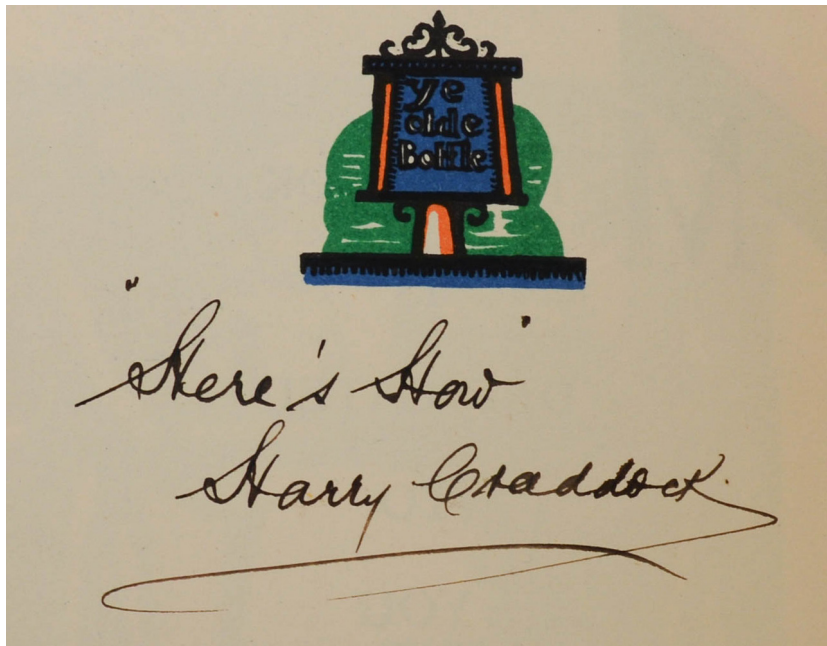 ye
olde
Bottle
"Here's How"
Harry Craddock.